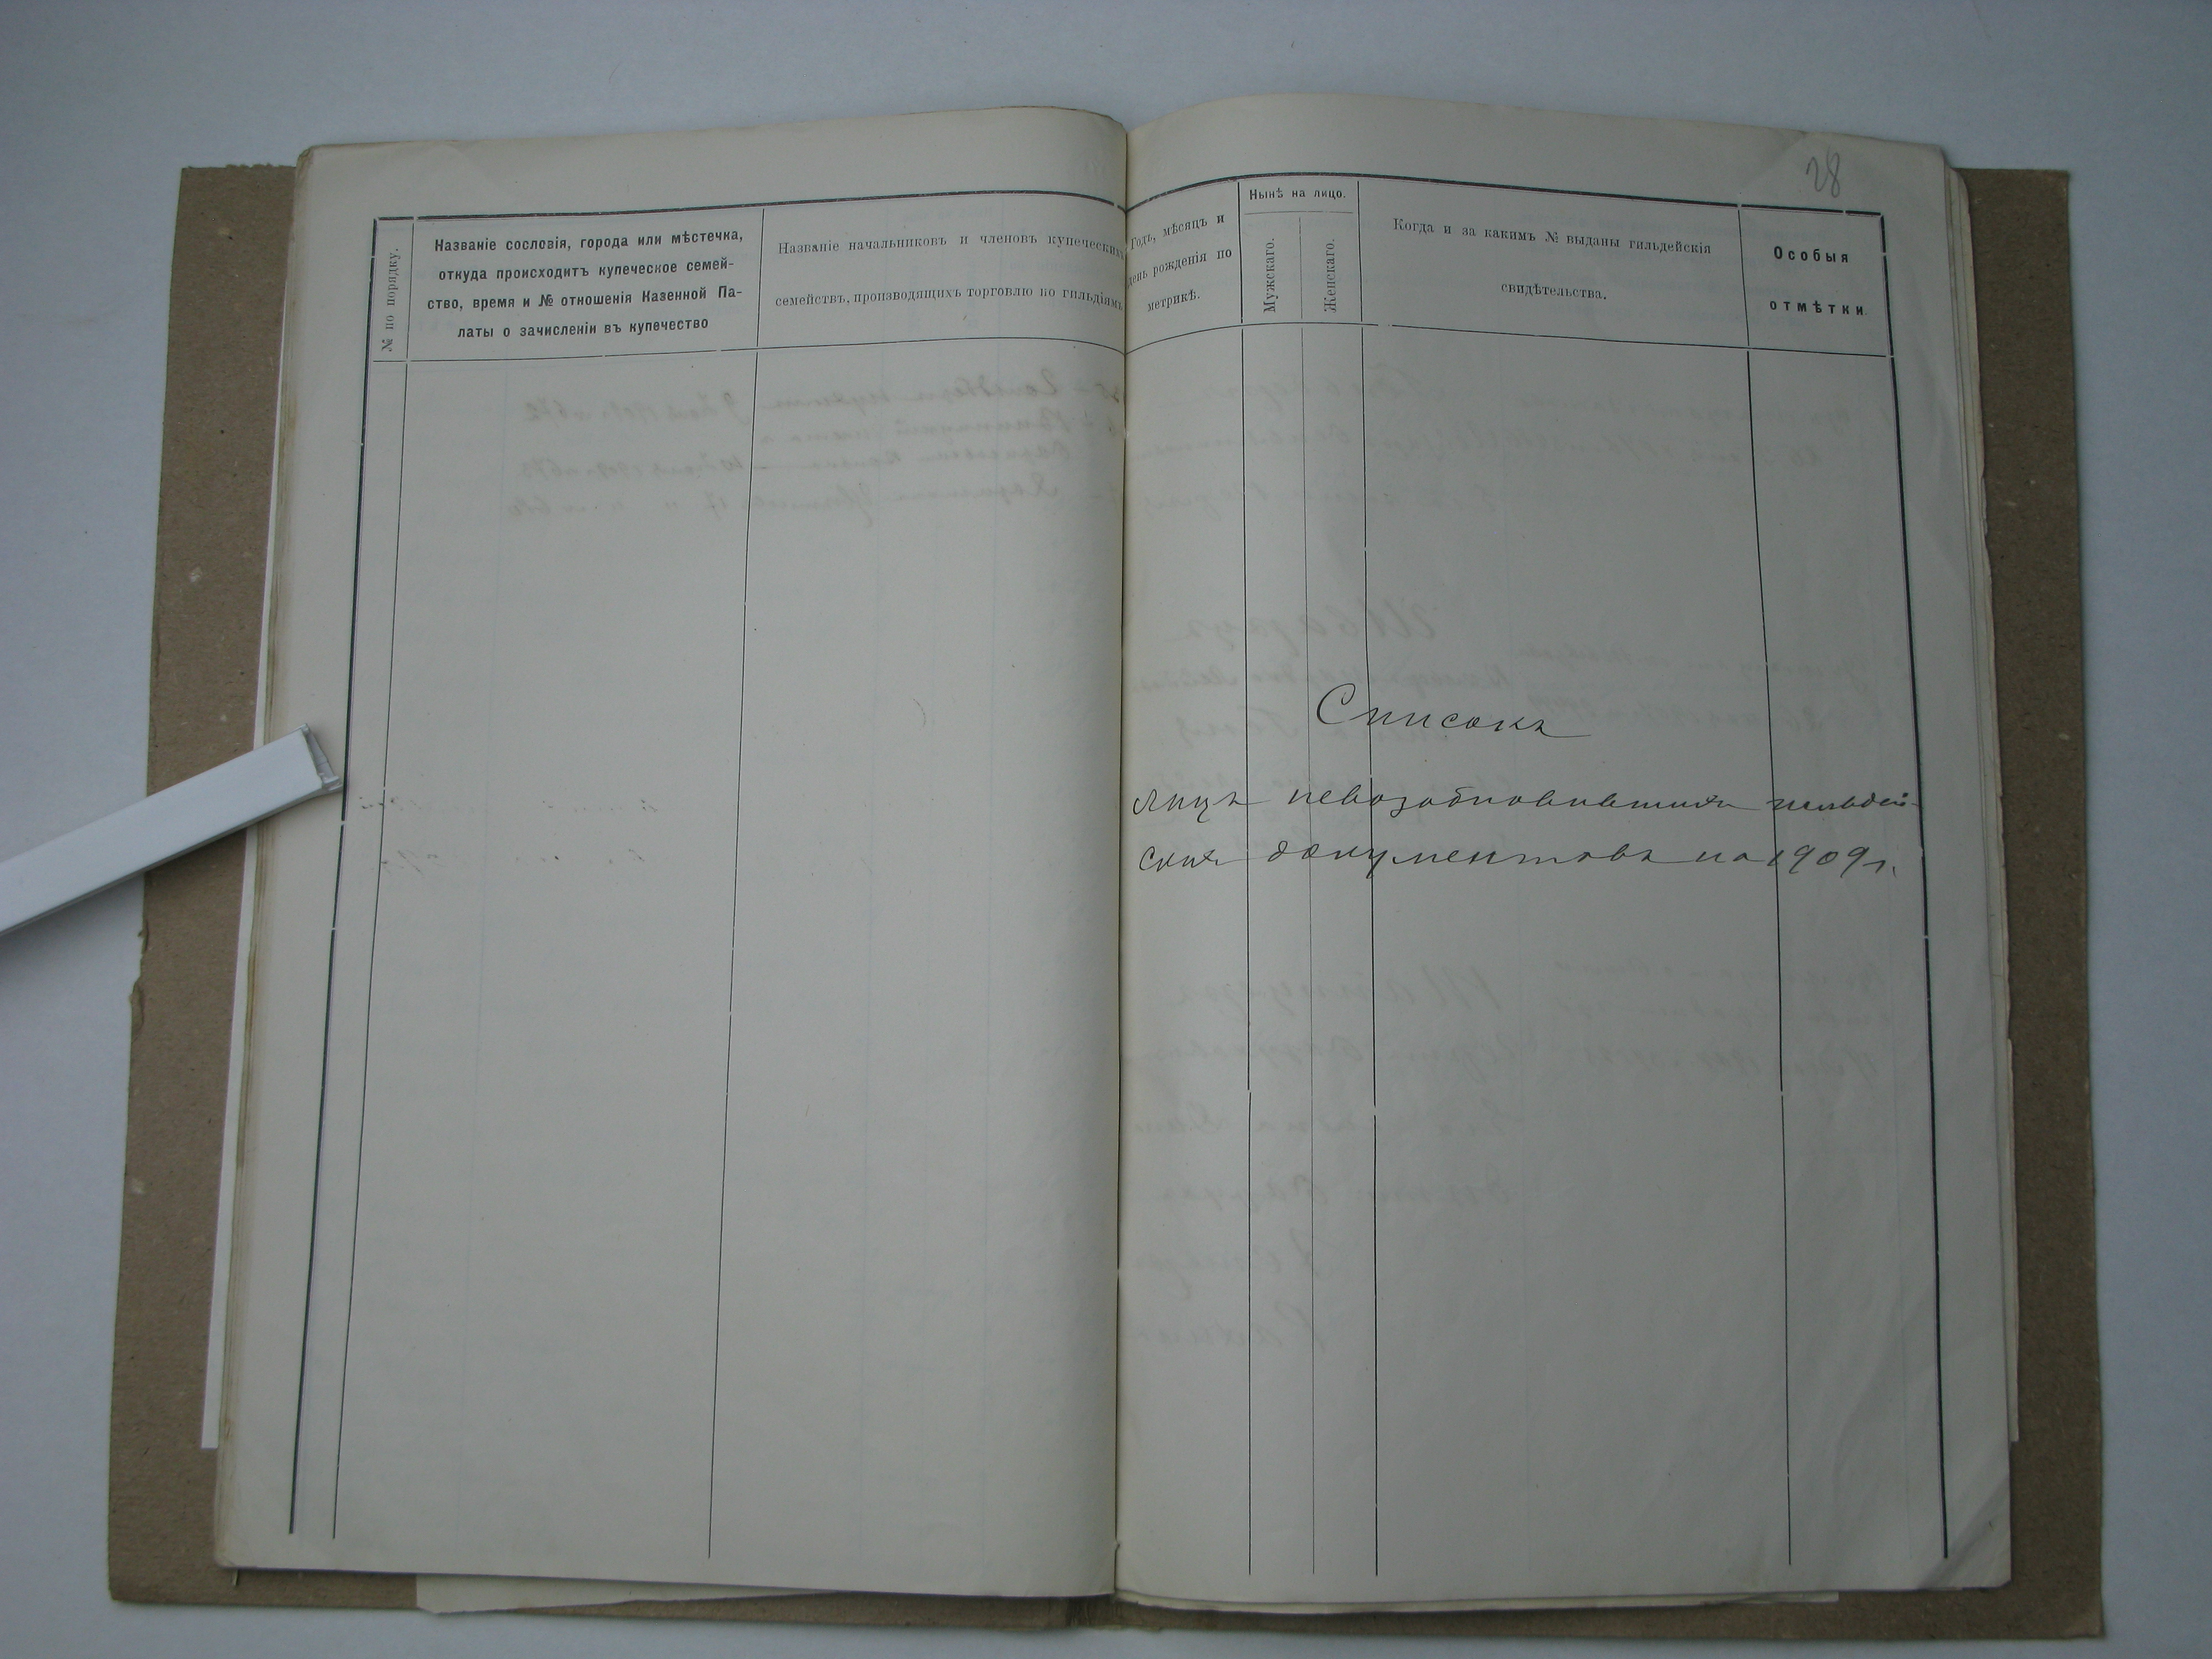 28
№ по порядку.
Названіе сословія, города или мѣстечка,
откуда происходитъ купеческое семей-
ство, время и № отношенія Казенной Па-
латы о зачисленіи въ купечество
Названіе начальниковъ и членовъ купеческихъ
семействъ, производящихъ торговлю по гильдіямъ
Годъ, мѣсяцъ и
день рожденія по
метрикѣ.
Нынѣ на лицо.
Мужскаго.
Женскаго.
Когда и за какимъ № выданы гильдейскія
свидѣтельства.
Особыя
отмѣтки
Списокъ
лицъ невозобновившихъ гильдей-
скихъ документовъ на 1909 г.